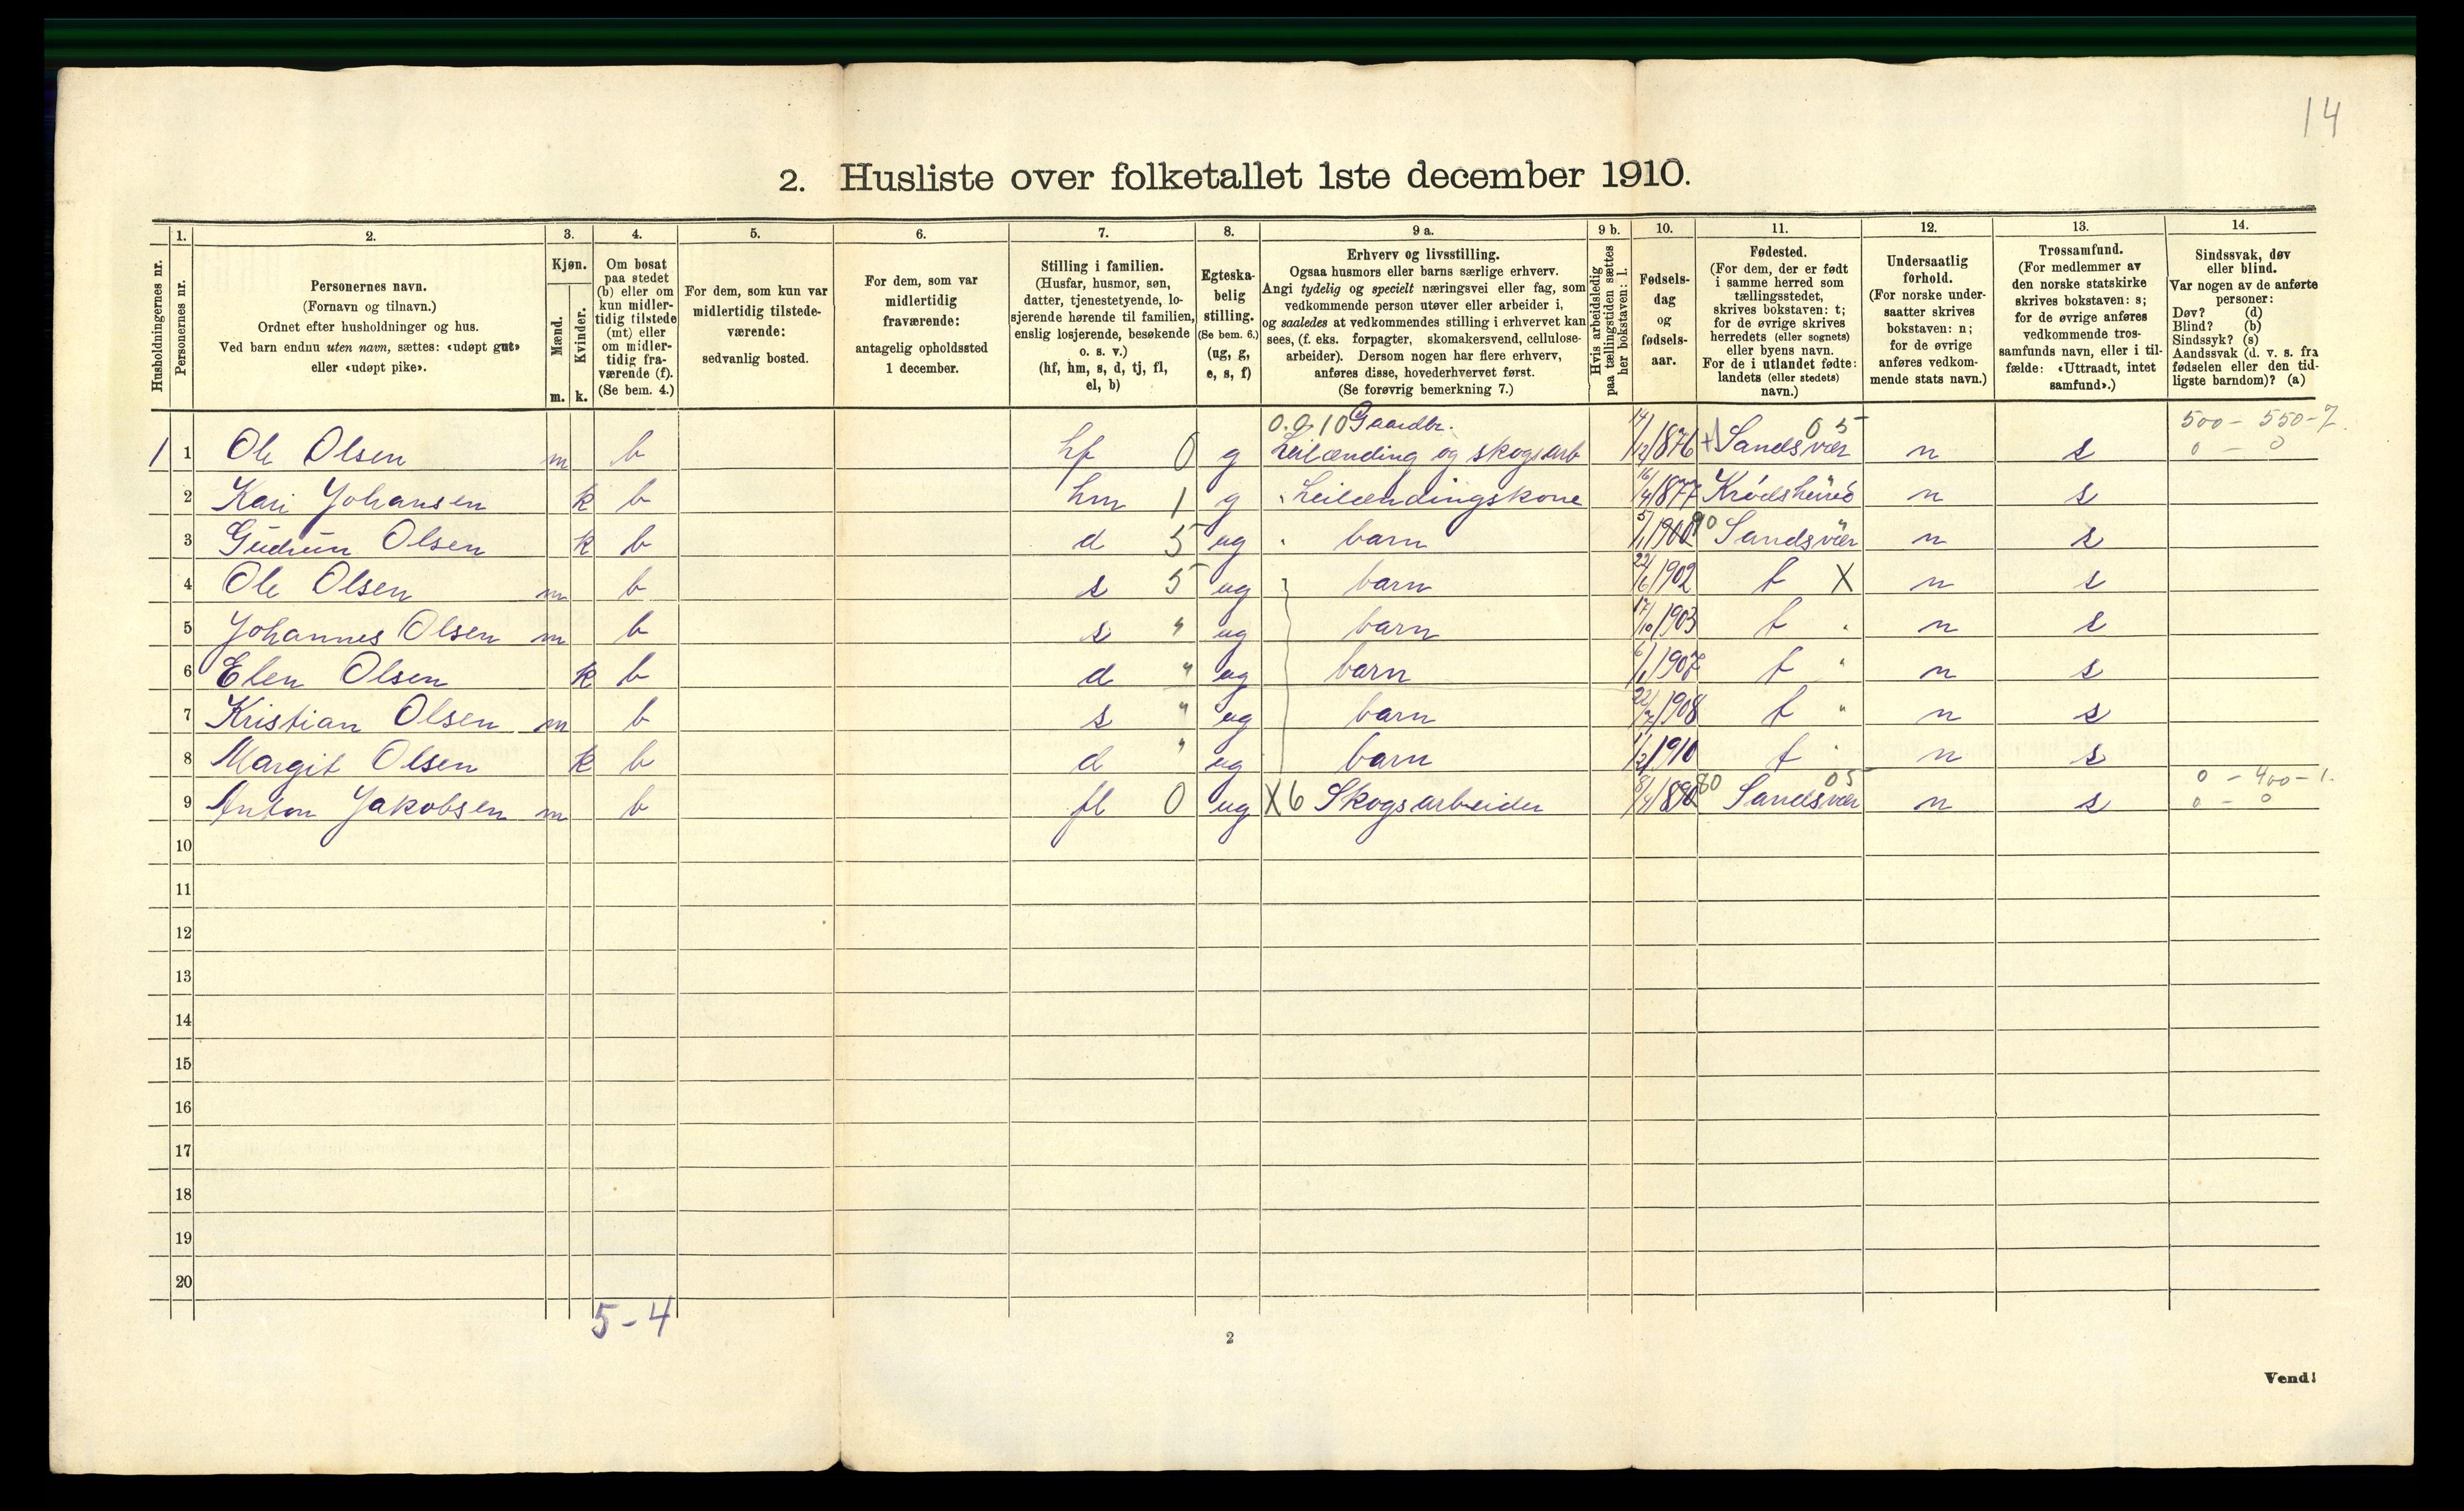 14
2. Husliste over folketallet 1ste december 1910.
Husholdningernes nr.
1.
Personernes nr.
2.
Personernes navn.
(Fornavn og tilnavn.)
Ordnet efter husholdninger og hus.
Ved barn endnu uten navn, sættes: «udøpt gut»
eller «udøpt pike».
3.
Kjøn.
Mænd.
Kvinder.
m. k.
4.
Om bosat
paa stedet
(b) eller om
kun midler-
tidig tilstede
(mt) eller
om midler-
tidig fra-
værende (f).
(Se bem. 4.)
5.
For dem, som kun var
midlertidig tilstede-
værende:
sedvanlig bosted.
6.
For dem, som var
midlertidig
fraværende:
antagelig opholdssted
1 december.
7.
Stilling i familien.
(Husfar, husmor, søn,
datter, tjenestetyende, lo-
sjerende hørende til familien,
enslig losjerende, besøkende
o. s. v.)
(hf, hm, s, d, tj, fl,
el, b)
8.
Egteska-
belig
stilling.
(Se bem. 6.)
(ug, g,
e, s, f)
9 a.
Erhverv og livsstilling.
Ogsaa husmors eller barns særlige erhverv.
Angi tydelig og specielt næringsvei eller fag, som
vedkommende person utøver eller arbeider i,
og saaledes at vedkommendes stilling i erhvervet kan
sees, (f. eks. forpagter, skomakersvend, cellulose-
arbeider). Dersom nogen har flere erhverv,
anføres disse, hovederhvervet først.
(Se forøvrig bemerkning 7.)
9 b.
Hvis arbeidsledig
paa tællingstiden sættes
her bokstaven: l.
10.
Fødsels-
dag
og
fødsels-
aar.
11.
Fødested.
(For dem, der er født
i samme herred som
tællingsstedet,
skrives bokstaven: t;
for de øvrige skrives
herredets (eller sognets)
eller byens navn.
For de i utlandet fødte:
landets (eller stedets)
navn.)
12.
Undersaatlig
forhold.
(For norske under-
saatter skrives
bokstaven: n;
for de øvrige
anføres vedkom-
mende stats navn.)
13.
Trossamfund.
(For medlemmer av
den norske statskirke
skrives bokstaven: s;
for de øvrige anføres
vedkommende tros-
samfunds navn, eller i til-
fælde: «Uttraadt, intet
samfund».)
14.
Sindssvak, døv
eller blind.
Var nogen av de anførte
personer:
Døv? (d)
Blind? (b)
Sindssyk? (s)
Aandssvak (d. v. s. fra
fødselen eller den tid-
ligste barndom)? (a)
0.0.10 Gaardbr. 05 500 - 550 - 7
1 1 Ole Olsen m b hf 0 g Leilænding og skogsarb 14/12 1876 Sandsvær n s 0 - 0
2 Kari Johansen k b hm 1 g Leilændingskone 16/4 1877 Krødsherred n s
3 Gudrun Olsen k b d 5 ug barn 5/1 1900 Sandsvær n s
4 Ole Olsen m b s 5 ug barn 22/6 1902 t X n s
5 Johannes Olsen m b s " ug barn 17/10 1903 t n s
6 Elen Olsen k b d " ug barn 6/1 1907 t " n s
7 Kristian Olsen m b s " ug barn 22/7 1908 t " n s
8 Margit Olsen k b d " ug barn 1/2 1910 t n s
05 0 - 400 - 1.
9 Anton Jakobsen m b fl 0 ug X6 Skogsarbeider 8/4 1890 80 Sandsvær n s 0 - 0
10
11
12
13
14
15
16
17
18
19
20
5 - 4
2
Vend!